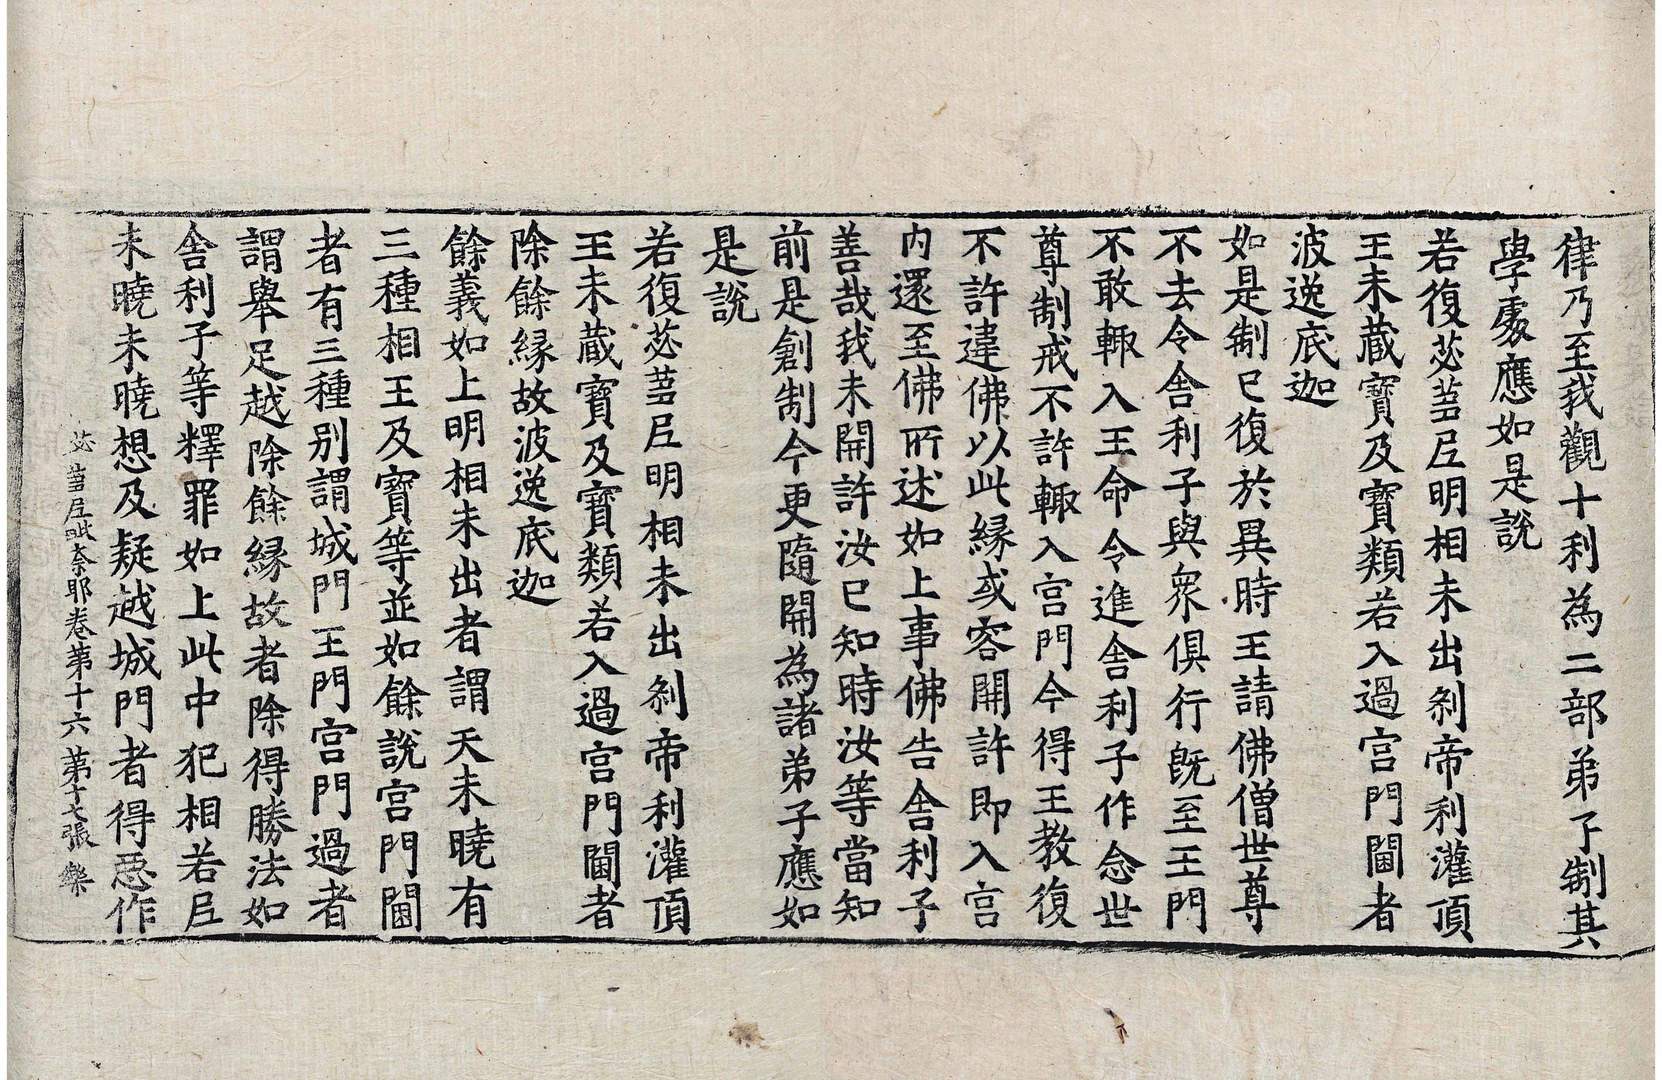 律乃至我觀十利為二部弟子制其
學處應如是說
若復苾芻尼明相未出剎帝利灌頂
王未藏寶及寶類若入過宮門閫者
波逸底迦
如是制已復於異時王請佛僧世尊
不去令舍利子與眾俱行既至王門
不敢輙入王命令進舍利子作念世
尊制戒不許輙入宮門今得王教復
不許違佛以此緣或容開許即入宮
內還至佛所述如上事佛告舍利子
善哉我未開許汝已知時汝等當知
前是創制今更隨開為諸弟子應如
是說
若復苾芻尼明相未出剎帝利灌頂
王未藏寶及寶類若入過宮門閫者
除餘緣故波逸底迦
餘義如上明相未出者謂天未曉有
三種相王及寶等並如餘說宮門閫
者有三種別謂城門王門宮門過者
謂舉足越除餘緣故者除得勝法如
舍利子等釋罪如上此中犯相若尼
未曉未曉想及疑越城門者得惡作
苾芻尼毗奈耶卷第十六 第十七張 樂